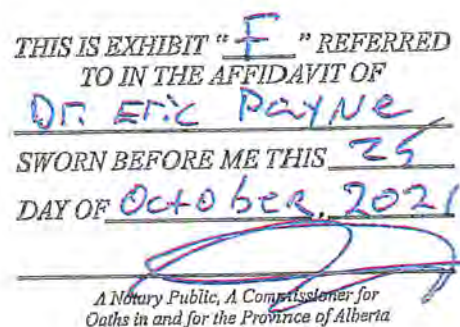 THIS IS EXHIBIT "F" REFERRED
TO IN THE AFFIDAVIT OF
Dr. Eric Payne
SWORN BEFORE ME THIS 25
DAY OF October, 2021
A Notary Public, A Commissioner for
Oaths in and for the Province of Alberta